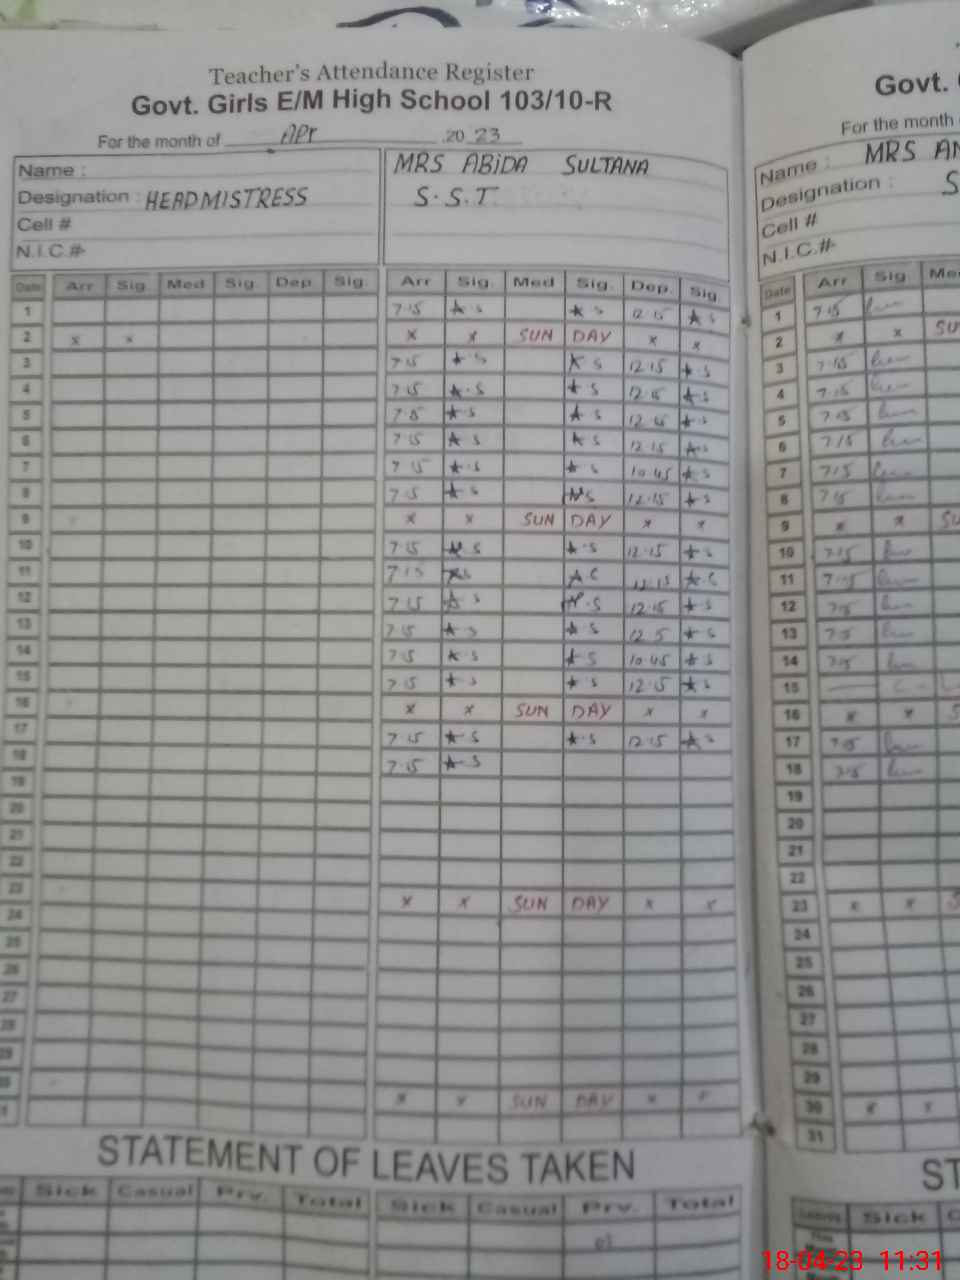 Teacher's Attendance Register
Govt. Girls E/M High School 103/10-R
For the month of Apr 2023
Name :
Designation : HEADMISTRESS
Cell #
N.I.C.#
MRS ABIDA SULTANA
S.S.T
Date Arr Sig. Med Sig. Dep. Sig. Arr Sig. Med Sig. Dep. Sig.
1 7·15 A·S A·S 12·15 A·S
2 x x x x SUN DAY x x
3 7·15 A·S A·S 12·15 A·S
4 7·15 A·S A·S 12·15 A·S
5 7·15 A·S A·S 12·15 A·S
6 7·15 A·S A·S 12·15 A·S
7 7·15 A·S A·S 10·45 A·S
8 7·15 A·S A·S 12·15 A·S
9 x x SUN DAY x x
10 7·15 A·S A·S 12·15 A·S
11 7·15 A·S A·S 12·15 A·S
12 7·15 A·S A·S 12·15 A·S
13 7·15 A·S A·S 12·5 A·S
14 7·15 A·S A·S 10·45 A·S
15 7·15 A·S A·S 12·15 A·S
16 x x SUN DAY x x
17 7·15 A·S A·S 12·15 A·S
18 7·15 A·S
19
20
21
22
23 x x SUN DAY x x
24
25
26
27
28
29
x x SUN DAY x x
STATEMENT OF LEAVES TAKEN
Sick Casual Prv. Total Sick Casual Prv. Total
01
Govt.
For the month
Name : MRS
Designation : S
Cell #
N.I.C.#
Date Arr Sig.
1 7·15
2 x x SU
3 7·15
4 7·15
5 7·15
6 7·15
7 7·15
8 7·15
9 x x SU
10 7·15
11 7·15
12 7·15
13 7·15
14 7·15
15
16 x x S
17 7·15
18 7·15
19
20
21
22
23 x x S
24
25
26
27
28
29
30 x x
31
ST
Sick
18-04-23 11:31